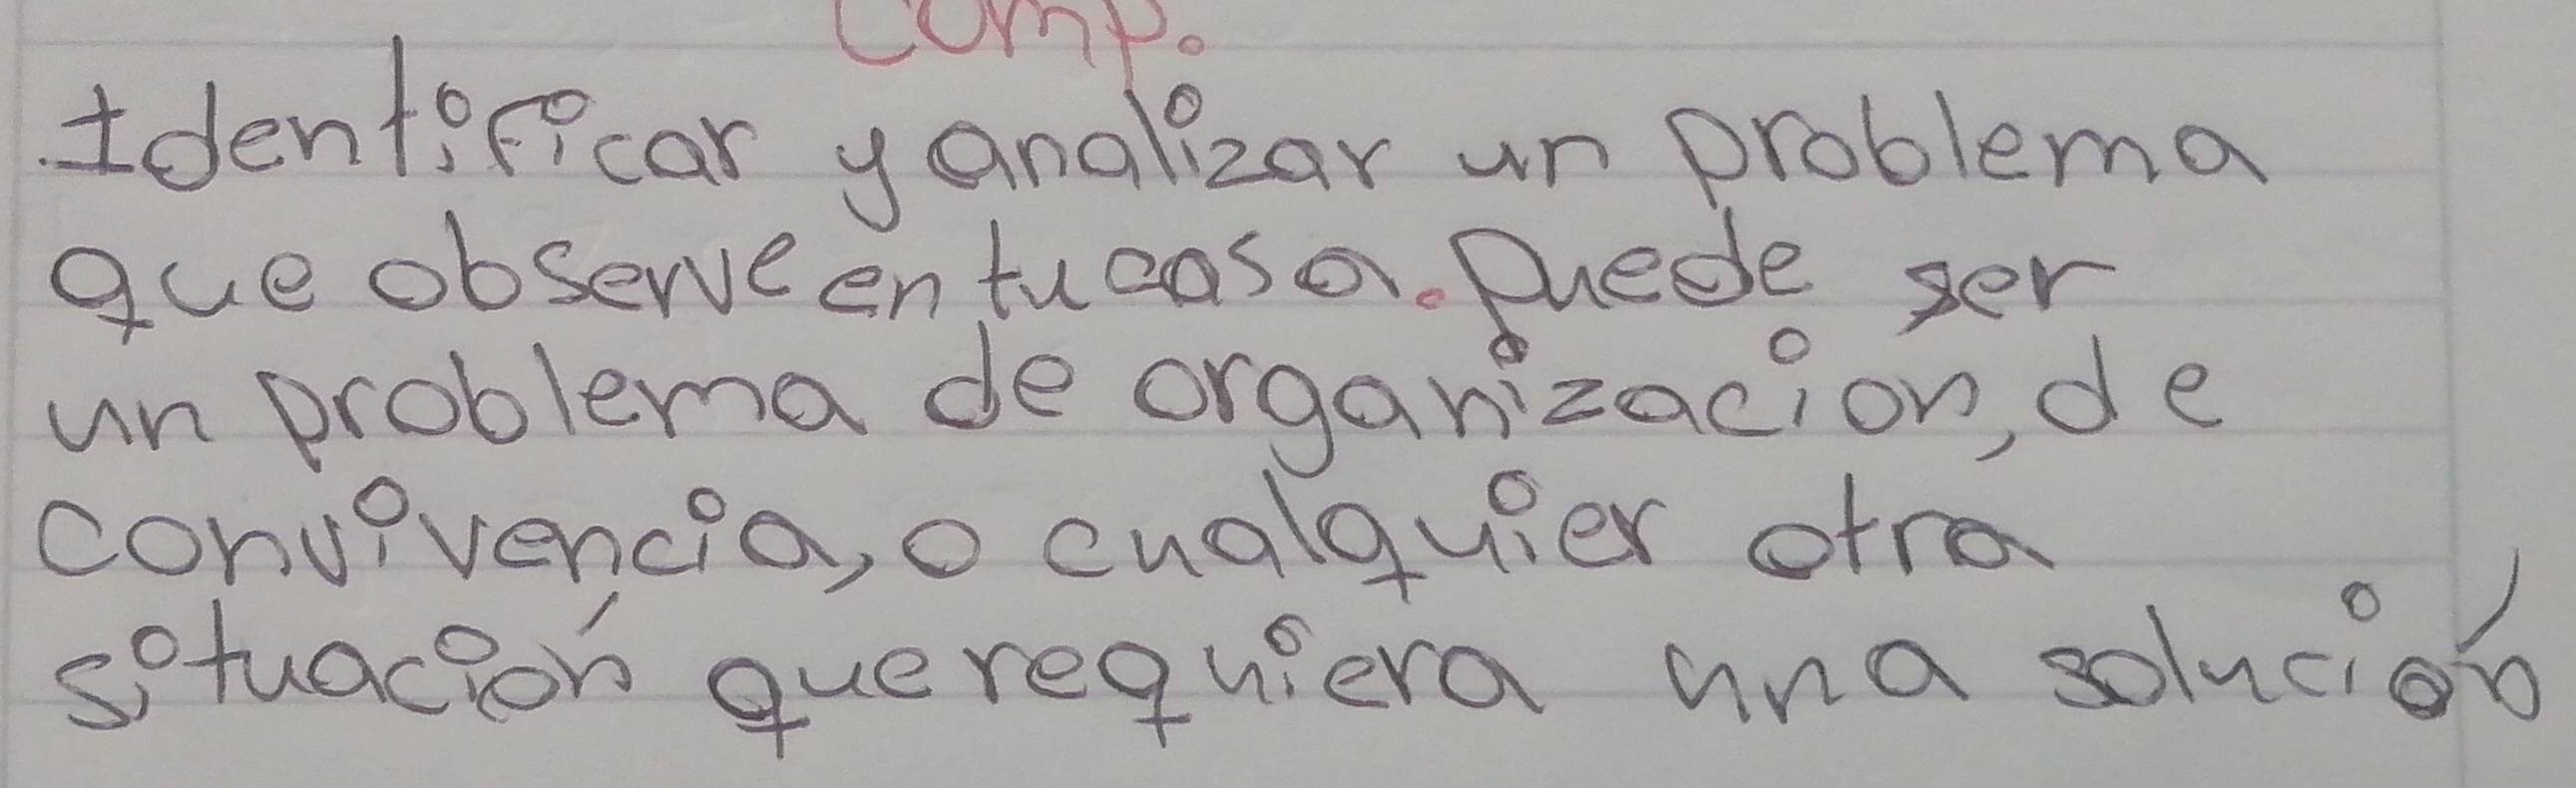 Comp.
Identificar y analizar un problema
que observe en tu casa. puede ser
un problema de organizacion, de
convivencia, o cualquier otra
situación que requiera una solución